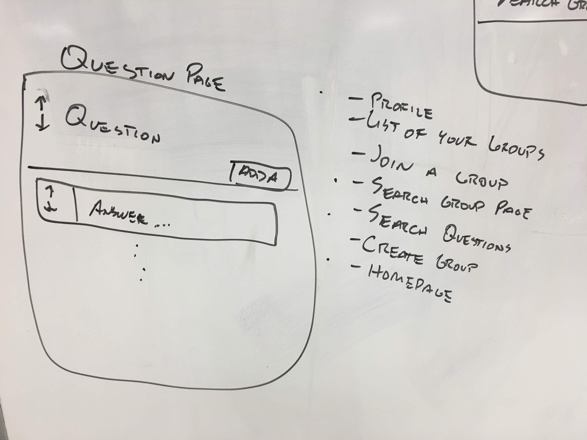 SEARCH GR
QUESTION PAGE
QUESTION
ADD A
ANSWER ...
- PROFILE
- LIST OF YOUR GROUPS
- JOIN A GROUP
- SEARCH GROUP PAGE
- SEARCH QUESTIONS
- CREATE GROUP
- HOMEPAGE